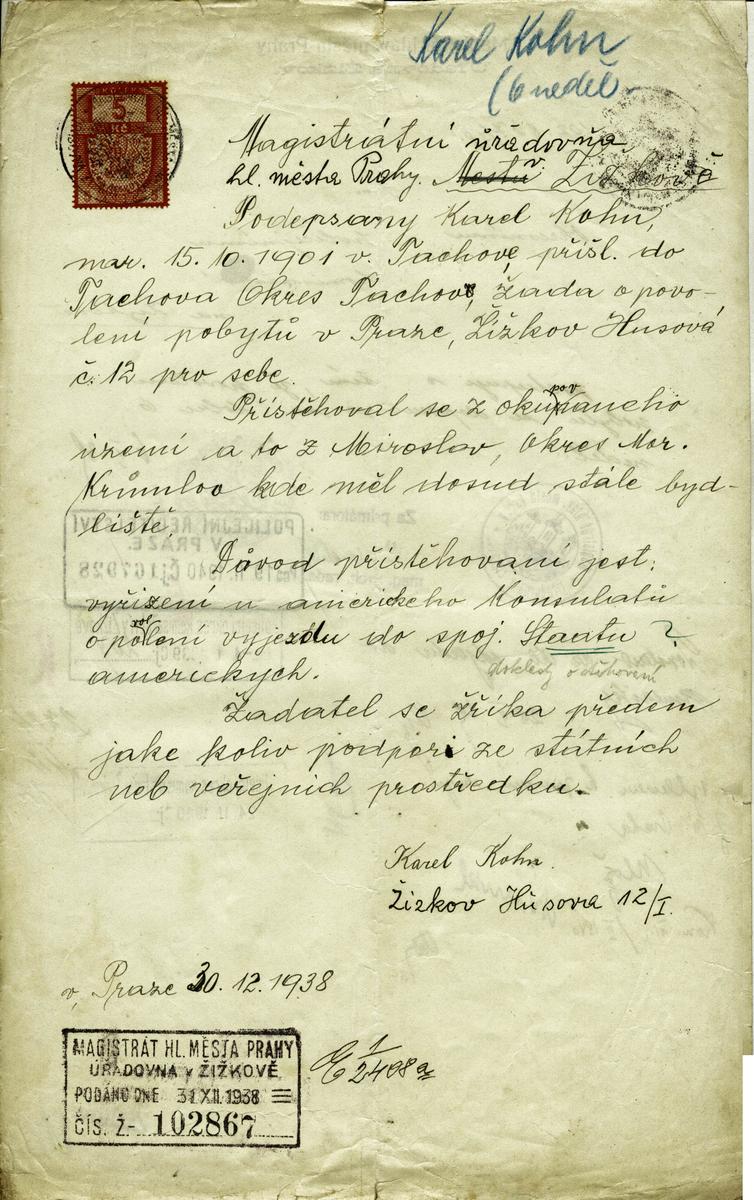 Karel Kohn
(6 neděl
KOLEK
5
Kč
Magistrátní úřadovňa
hl. města Prahy. Mestu v Žižkově
Podepsany Karel Kohn,
nar. 15.10.1901 v. Tachově, přísl. do
Tachova Okres Tachov, žada o povo-
lení pobytů v Praze, Žižkov Husová
č. 12 pro sebe.
Přistěhoval se z okupovaneho
území a to z Miroslav, Okres Mor.
Krůmlov kde měl dosud stále byd-
liště.
Důvod přistěhovaní jest,
vyřízení u americkeho Konsulatů
o povolení vyjezdu do spoj. Staatu ?
amerických.
doklady o stěhovaní
Žadatel se zříka předem
jake koliv podpori ze státních
neb veřejních prostředku.
Karel Kohn.
Žižkov Húsova 12/I.
v, Praze 30.12.1938
MAGISTRÁT HL. MĚSTA PRAHY
ÚŘADOVNA v ŽIŽKOVĚ
PODÁNO DNE 31 XII. 1938
ČÍS. Ž.- 102867
E 1/2408a